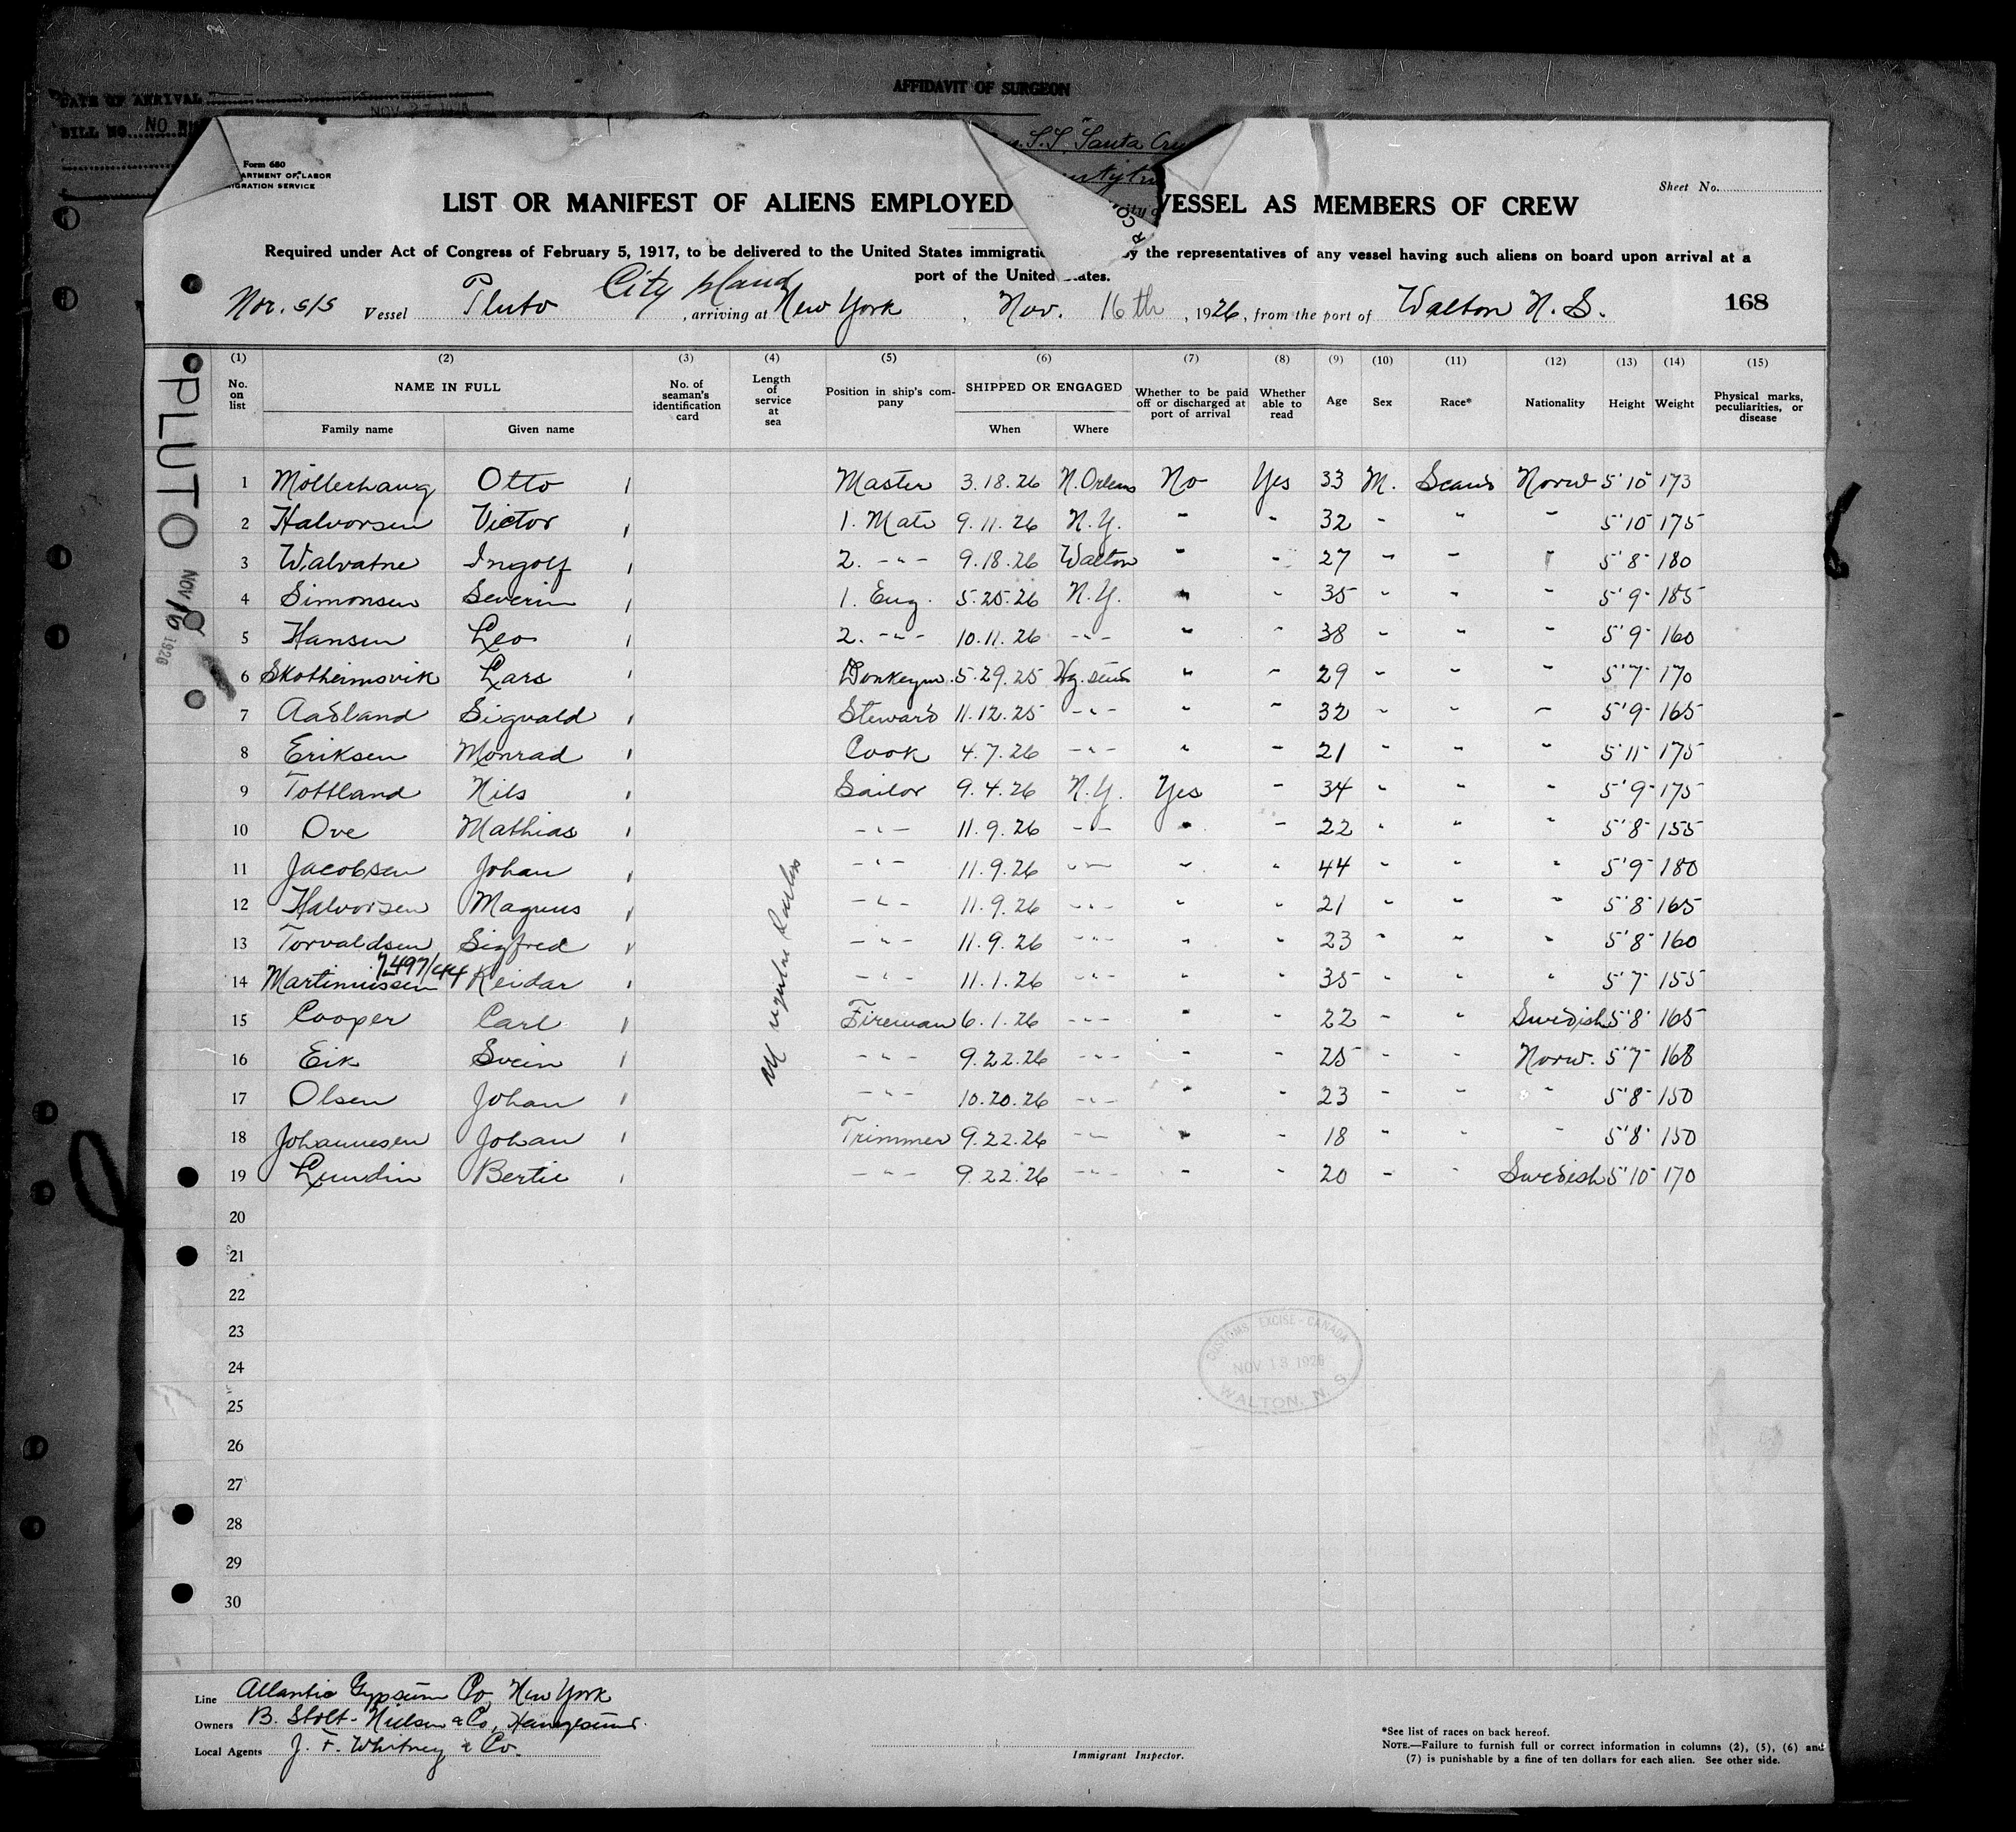 AFFIDAVIT OF SURGEON
DATE OF ARRIVAL
BILL NO. NO
S.S. Santa
Form 680
ARTMENT OF LABOR
IGRATION SERVICE
Sheet No.
LIST OR MANIFEST OF ALIENS EMPLOYED VESSEL AS MEMBERS OF CREW
Required under Act of Congress of February 5, 1917, to be delivered to the United States immigratio by the representatives of any vessel having such aliens on board upon arrival at a
port of the United States.
City Island
Nor. S/S Vessel Pluto , arriving at New York , Nov. 16th , 1926, from the port of Walton N. S. 168
(1) (2) (3) (4) (5) (6) (7) (8) (9) (10) (11) (12) (13) (14) (15)
No. on list NAME IN FULL Family name Given name No. of seaman's identification card Length of service at sea Position in ship's company SHIPPED OR ENGAGED When Where Whether to be paid off or discharged at port of arrival Whether able to read Age Sex Race* Nationality Height Weight Physical marks, peculiarities, or disease
PLUTO
NOV 16 1926
1 Möllerhaug Otto Master 3.18.26 N. Orleans No Yes 33 M. Scand Norw 5'10 173
2 Halvorsen Victor 1. Mate 9.11.26 N.Y. " " 32 " " " 5'10 175
3 Walvatne Ingolf 2. -"- 9.18.26 Walton " " 27 " " " 5'8 180
4 Simonsen Severin 1. Eng. 5.25.26 N.Y. " " 35 " " " 5'9 185
5 Hansen Leo 2. -"- 10.11.26 -"- " " 38 " " " 5'9 160
6 Skotheimsvik Lars Donkeym. 5.29.25 Hg.sund " " 29 " " " 5'7 170
7 Aadland Sigvald Steward 11.12.25 -"- " " 32 " " " 5'9 165
8 Eriksen Monrad Cook 4.7.26 -"- " " 21 " " " 5'11 175
9 Tottland Nils Sailor 9.4.26 N.Y. Yes " 34 " " " 5'9 175
10 Ove Mathias -"- 11.9.26 -"- " " 22 " " " 5'8 155
11 Jacobsen Johan -"- 11.9.26 -"- " " 44 " " " 5'9 180
12 Halvorsen Magnus -"- 11.9.26 -"- " " 21 " " " 5'8 165
13 Torvaldsen Sigfred -"- 11.9.26 -"- " " 23 " " " 5'8 160
7497/44
14 Martinussen Reidar -"- 11.1.26 -"- " " 35 " " " 5'7 155
15 Cooper Carl Fireman 6.1.26 -"- " " 22 " " Swedish 5'8 165
16 Eik Svein -"- 9.22.26 -"- " " 25 " " Norw. 5'7 168
17 Olsen Johan -"- 10.20.26 -"- " " 23 " " " 5'8 150
18 Johannesen Johan Trimmer 9.22.26 -"- " " 18 " " " 5'8 150
19 Lundin Bertie -"- 9.22.26 -"- " " 20 " " Swedish 5'10 170
All regular sailors
20
21
22
23
24
25
26
27
28
29
30
CUSTOMS - EXCISE - CANADA
NOV 13 1926
WALTON, N. S.
Line Atlantic Gypsum Co, New York
Owners B. Stolt-Nielsen & Co, Haugesund.
Local Agents J. F. Whitney & Co.
Immigrant Inspector.
*See list of races on back hereof.
NOTE.—Failure to furnish full or correct information in columns (2), (5), (6) and
(7) is punishable by a fine of ten dollars for each alien. See other side.